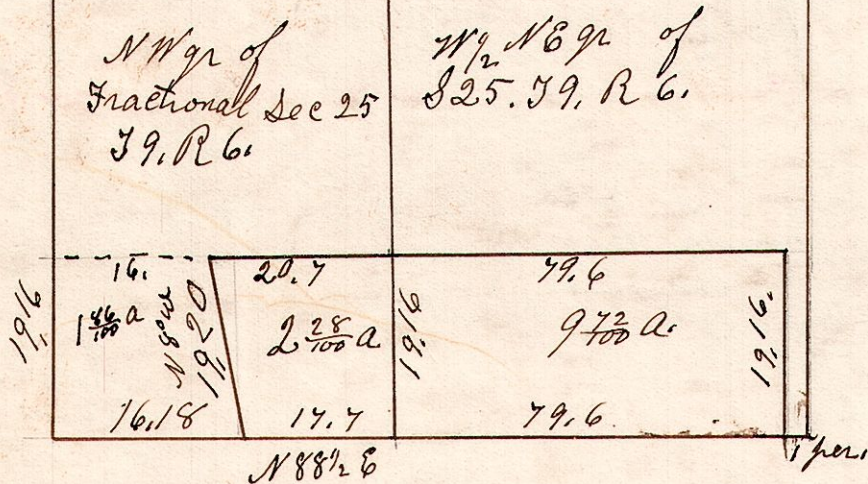 N W qr of
Fractional Sec 25
T 9. R 6.
W 1/2 N E qr of
S 25. T 9. R 6.
16.
20.7
79.6
19,16
1 86/100 a
N 8° W
19,20
2 28/100 a
19,16
9 72/100 a.
19,16.
16,18
17.7
79.6
N 88 1/2 E
1 per.